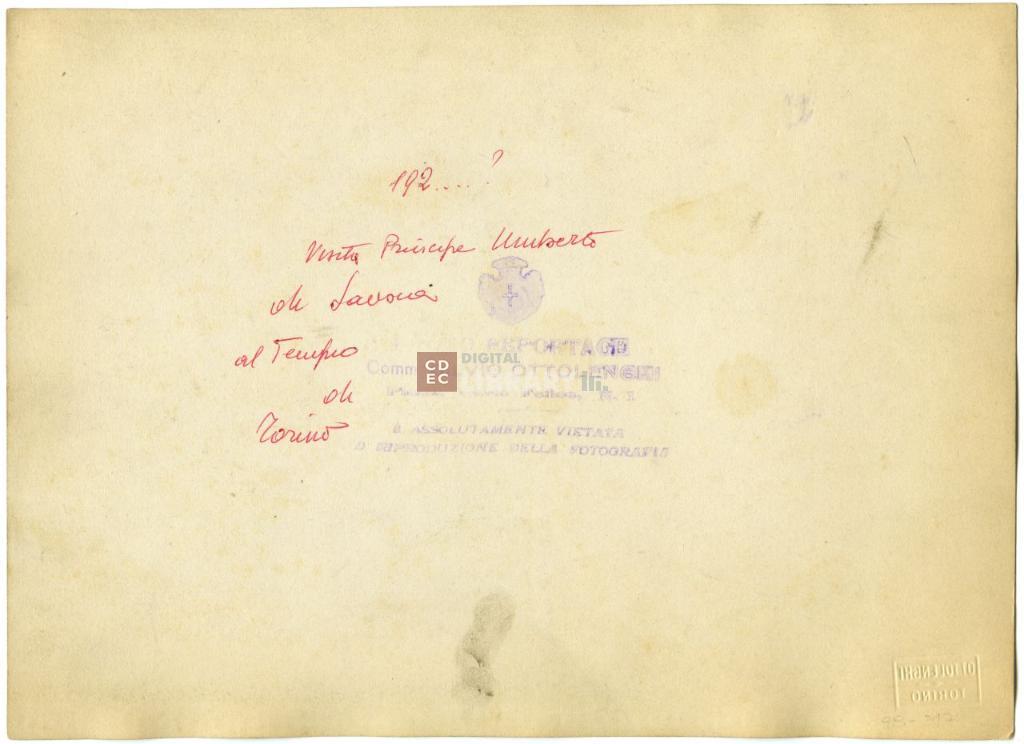 192....?
Visita Principe Umberto
di Savoia
al Tempio
di
Torino
REPORTAGE
Comm. VIO OTTOLENGHI
È ASSOLUTAMENTE VIETATA
RIPRODUZIONE DELLA FOTOGRAFIA
CD
EC
DIGITAL
LIBRARY
OTTOLENGHI
TORINO